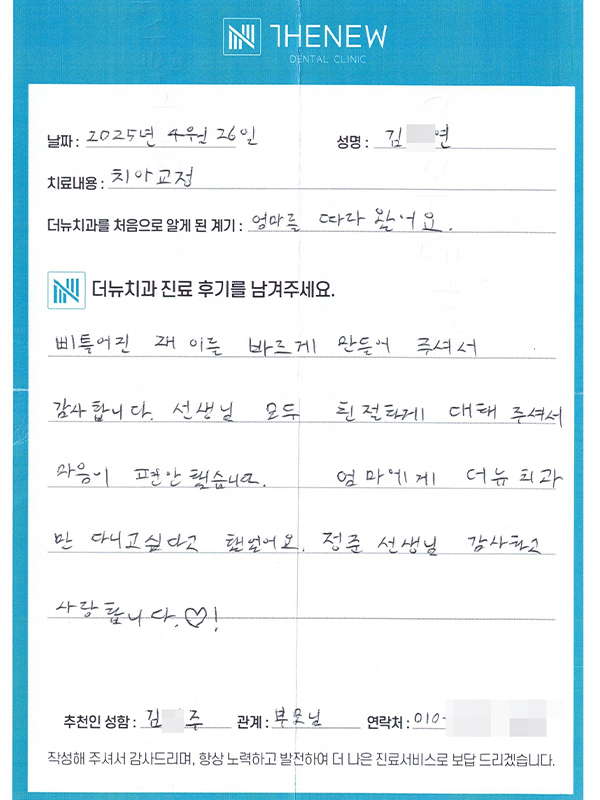 THENEW
DENTAL CLINIC
날짜 : 2025년 4월 26일 성명 : 김 연
치료내용 : 치아교정
더뉴치과를 처음으로 알게 된 계기 : 엄마를 따라 왔어요.
더뉴치과 진료 후기를 남겨주세요.
삐틀어진 제 이를 바르게 만들어 주셔서
감사합니다. 선생님 모두 친절하게 대해 주셔서
마음이 편안했습니다. 엄마에게 더뉴치과
만 다니고싶다고 했었어요. 정준 선생님 감사하고
사랑합니다.♡!
추천인 성함 : 김 주 관계 : 부모님 연락처 : 010-
작성해 주셔서 감사드리며, 항상 노력하고 발전하여 더 나은 진료서비스로 보답 드리겠습니다.